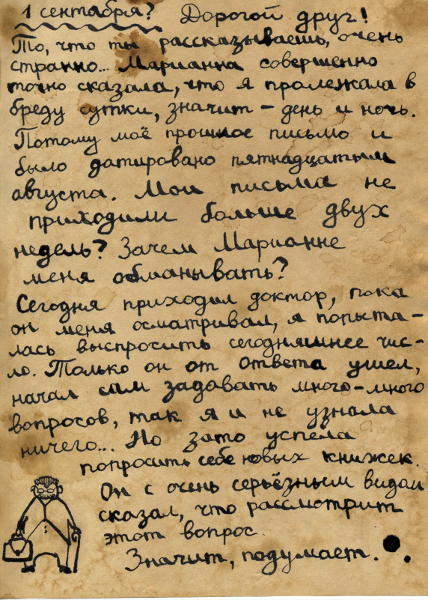 1 сентября? Дорогой друг!
То, что ты рассказываешь, очень
странно... Марианна совершенно
точно сказала, что я пролежала в
бреду сутки, значит - день и ночь.
Потому моё прошлое письмо и
было датировано пятнадцатым
августа. Мои письма не
приходили больше двух
недель? Зачем Марианне
меня обманывать?
Сегодня приходил доктор, пока
он меня осматривал, я попыта-
лась выспросить сегодняшнее чис-
ло. Только он от ответа ушел,
начал сам задавать много-много
вопросов, так я и не узнала
ничего... Но зато успела
попросить себе новых книжек.
Он с очень серьёзным видом
сказал, что рассмотрит
этот вопрос.
Значит, подумает.